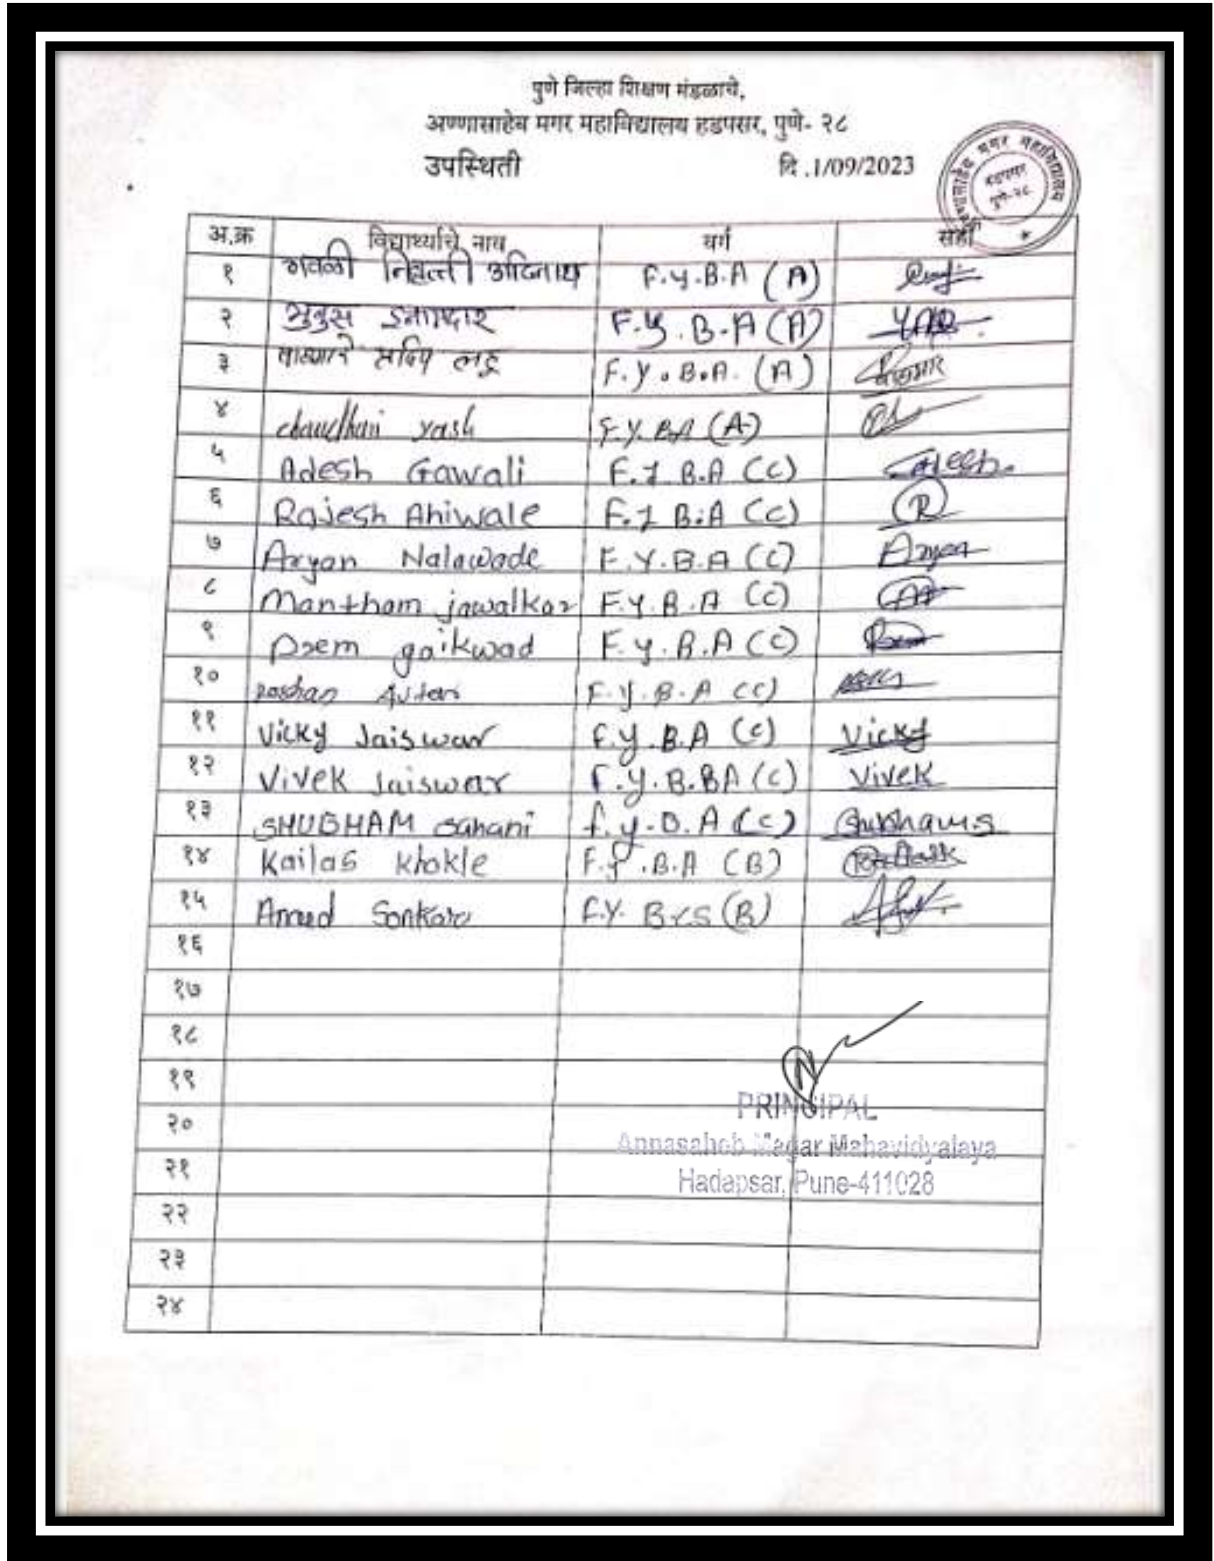 पुणे जिल्हा शिक्षण मंडळाचे,
अण्णासाहेब मगर महाविद्यालय हडपसर, पुणे- २८
उपस्थिती दि .1/09/2023
मगर महाविद्यालय
हडपसर
पुणे-२८
अ.क्र विद्यार्थ्याचे नाव वर्ग सही
१ गवळी निवृत्ती आदिनाथ F.Y.B.A (A)
२ इनामदार F.Y.B.A (A)
३ F.Y.B.A. (A)
४ chaudhari yash F.Y.BA (A)
५ Adesh Gawali F.Y B.A (C)
६ Rajesh Ahiwale F.Y B.A (C) R
७ Aryan Nalawade F.Y.B.A (C) Aryan
८ Mantham jawalkar F.Y.B.A (C)
९ Prem gaikwad F.Y.B.A (C)
१० F.Y.B.A (C)
११ Vicky Jaiswar F.Y.B.A (C) Vicky
१२ Vivek Jaiswar F.Y.B.BA (C) Vivek
१३ SHUBHAM Sahani F.Y.B.A (C)
१४ Kailas Khokle F.Y.B.A (B)
१५ Sonkar F.Y. (B)
१६
१७
१८
१९
२०
२१
२२
२३
२४
PRINCIPAL
Annasaheb Magar Mahavidyalaya
Hadapsar, Pune-411028